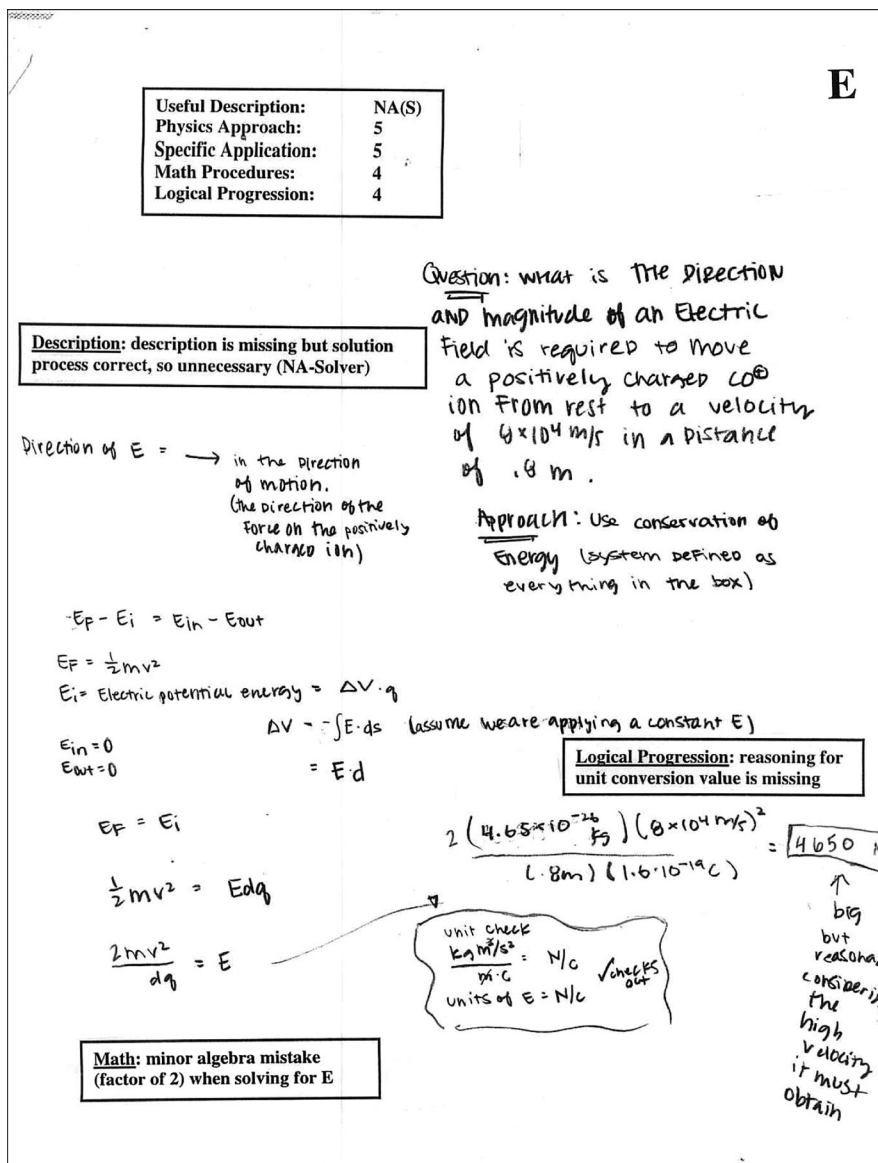 E
Useful Description: NA(S)
Physics Approach: 5
Specific Application: 5
Math Procedures: 4
Logical Progression: 4
Question: what is the direction
and magnitude of an Electric
Field is required to move
a positively charged CO⊕
ion from rest to a velocity
of 8×10⁴ m/s in a distance
of .8 m.
Description: description is missing but solution
process correct, so unnecessary (NA-Solver)
Direction of E = → in the direction
of motion.
(the direction of the
force on the positively
charged ion)
Approach: Use conservation of
Energy (system defined as
everything in the box)
E_F - E_i = E_in - E_out
E_F = ½mv²
E_i = Electric potential energy = ΔV·q
ΔV = -∫E·ds (assume we are applying a constant E)
E_in = 0
E_out = 0
= E·d
Logical Progression: reasoning for
unit conversion value is missing
E_F = E_i
½mv² = Edq
2mv²/dq = E
2(4.65×10⁻²⁶ kg)(8×10⁴ m/s)²/(.8m)(1.6·10⁻¹⁹C) = 4650
↑
big
but
considering
the
high
velocity
it must
obtain
unit check
kg m²/s²/m·C = N/C ✓checks out
units of E = N/C
Math: minor algebra mistake
(factor of 2) when solving for E